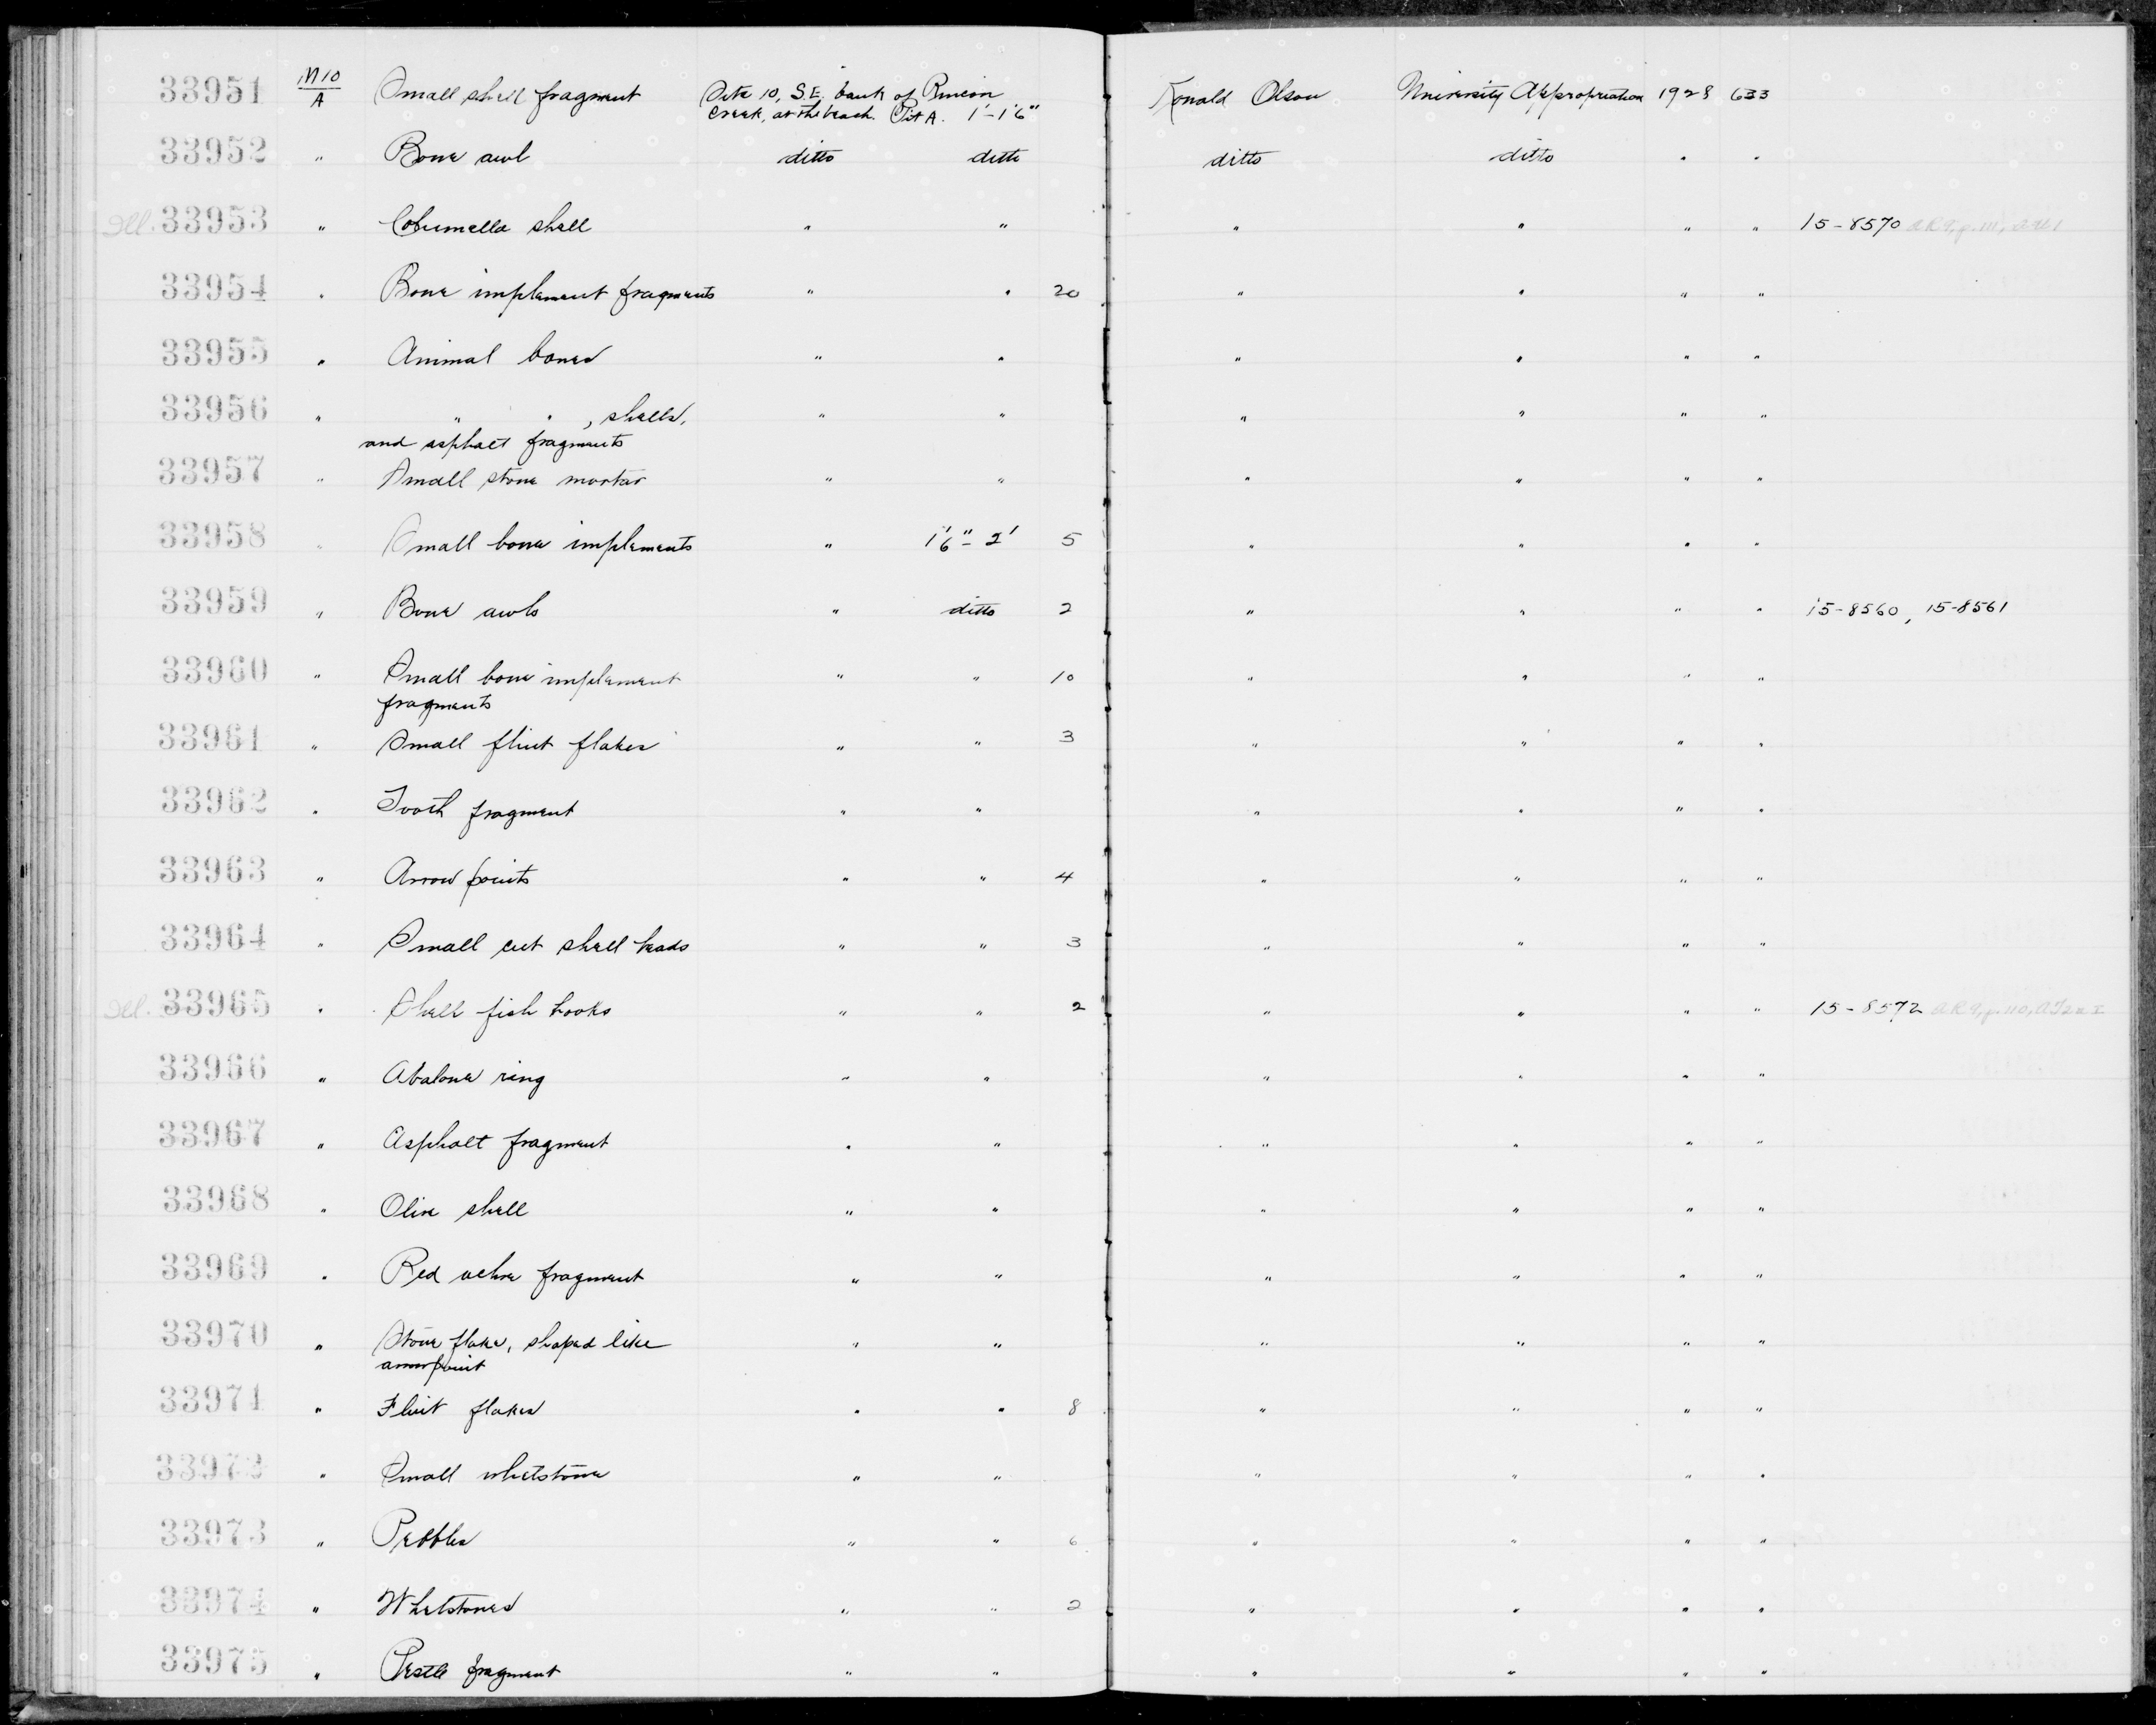 33951 M10/A Small shell fragment Site 10, S.E. bank of Rincon Creek, at the beach. Pit A. 1'-1'6" Ronald Olson University Appropriation 1928 633
33952 " Bone awl ditto ditto ditto ditto " "
Ill. 33953 " Columella shell " " " " " " 15-8570
33954 " Bone implement fragments " " 20 " " " "
33955 " Animal bones " " " " " "
33956 " " " , shells, " " " " " "
and asphalt fragments
33957 " Small stone mortar " " " " " "
33958 " Small bone implements " 1'6"-2' 5 " " " "
33959 " Bone awls " ditto 2 " " " " 15-8560, 15-8561
33960 " Small bone implement " " 10 " " " "
fragments
33961 " Small flint flakes " " 3 " " " "
33962 " Tooth fragment " " " " " "
33963 " Arrow points " " 4 " " " "
33964 " Small cut shell beads " " 3 " " " "
Ill. 33965 " Shell fish hooks " " 2 " " " " 15-8572
33966 " Abalone ring " " " " " "
33967 " Asphalt fragment " " " " " "
33968 " Olive shell " " " " " "
33969 " Red ochre fragment " " " " " "
33970 " Stone flake, shaped like " " " " " "
arrowpoint
33971 " Flint flakes " " 8 " " " "
33972 " Small whetstone " " " " " "
33973 " Pebbles " " 6 " " " "
33974 " Whetstones " " 2 " " " "
33975 " Pestle fragment " " " " " "